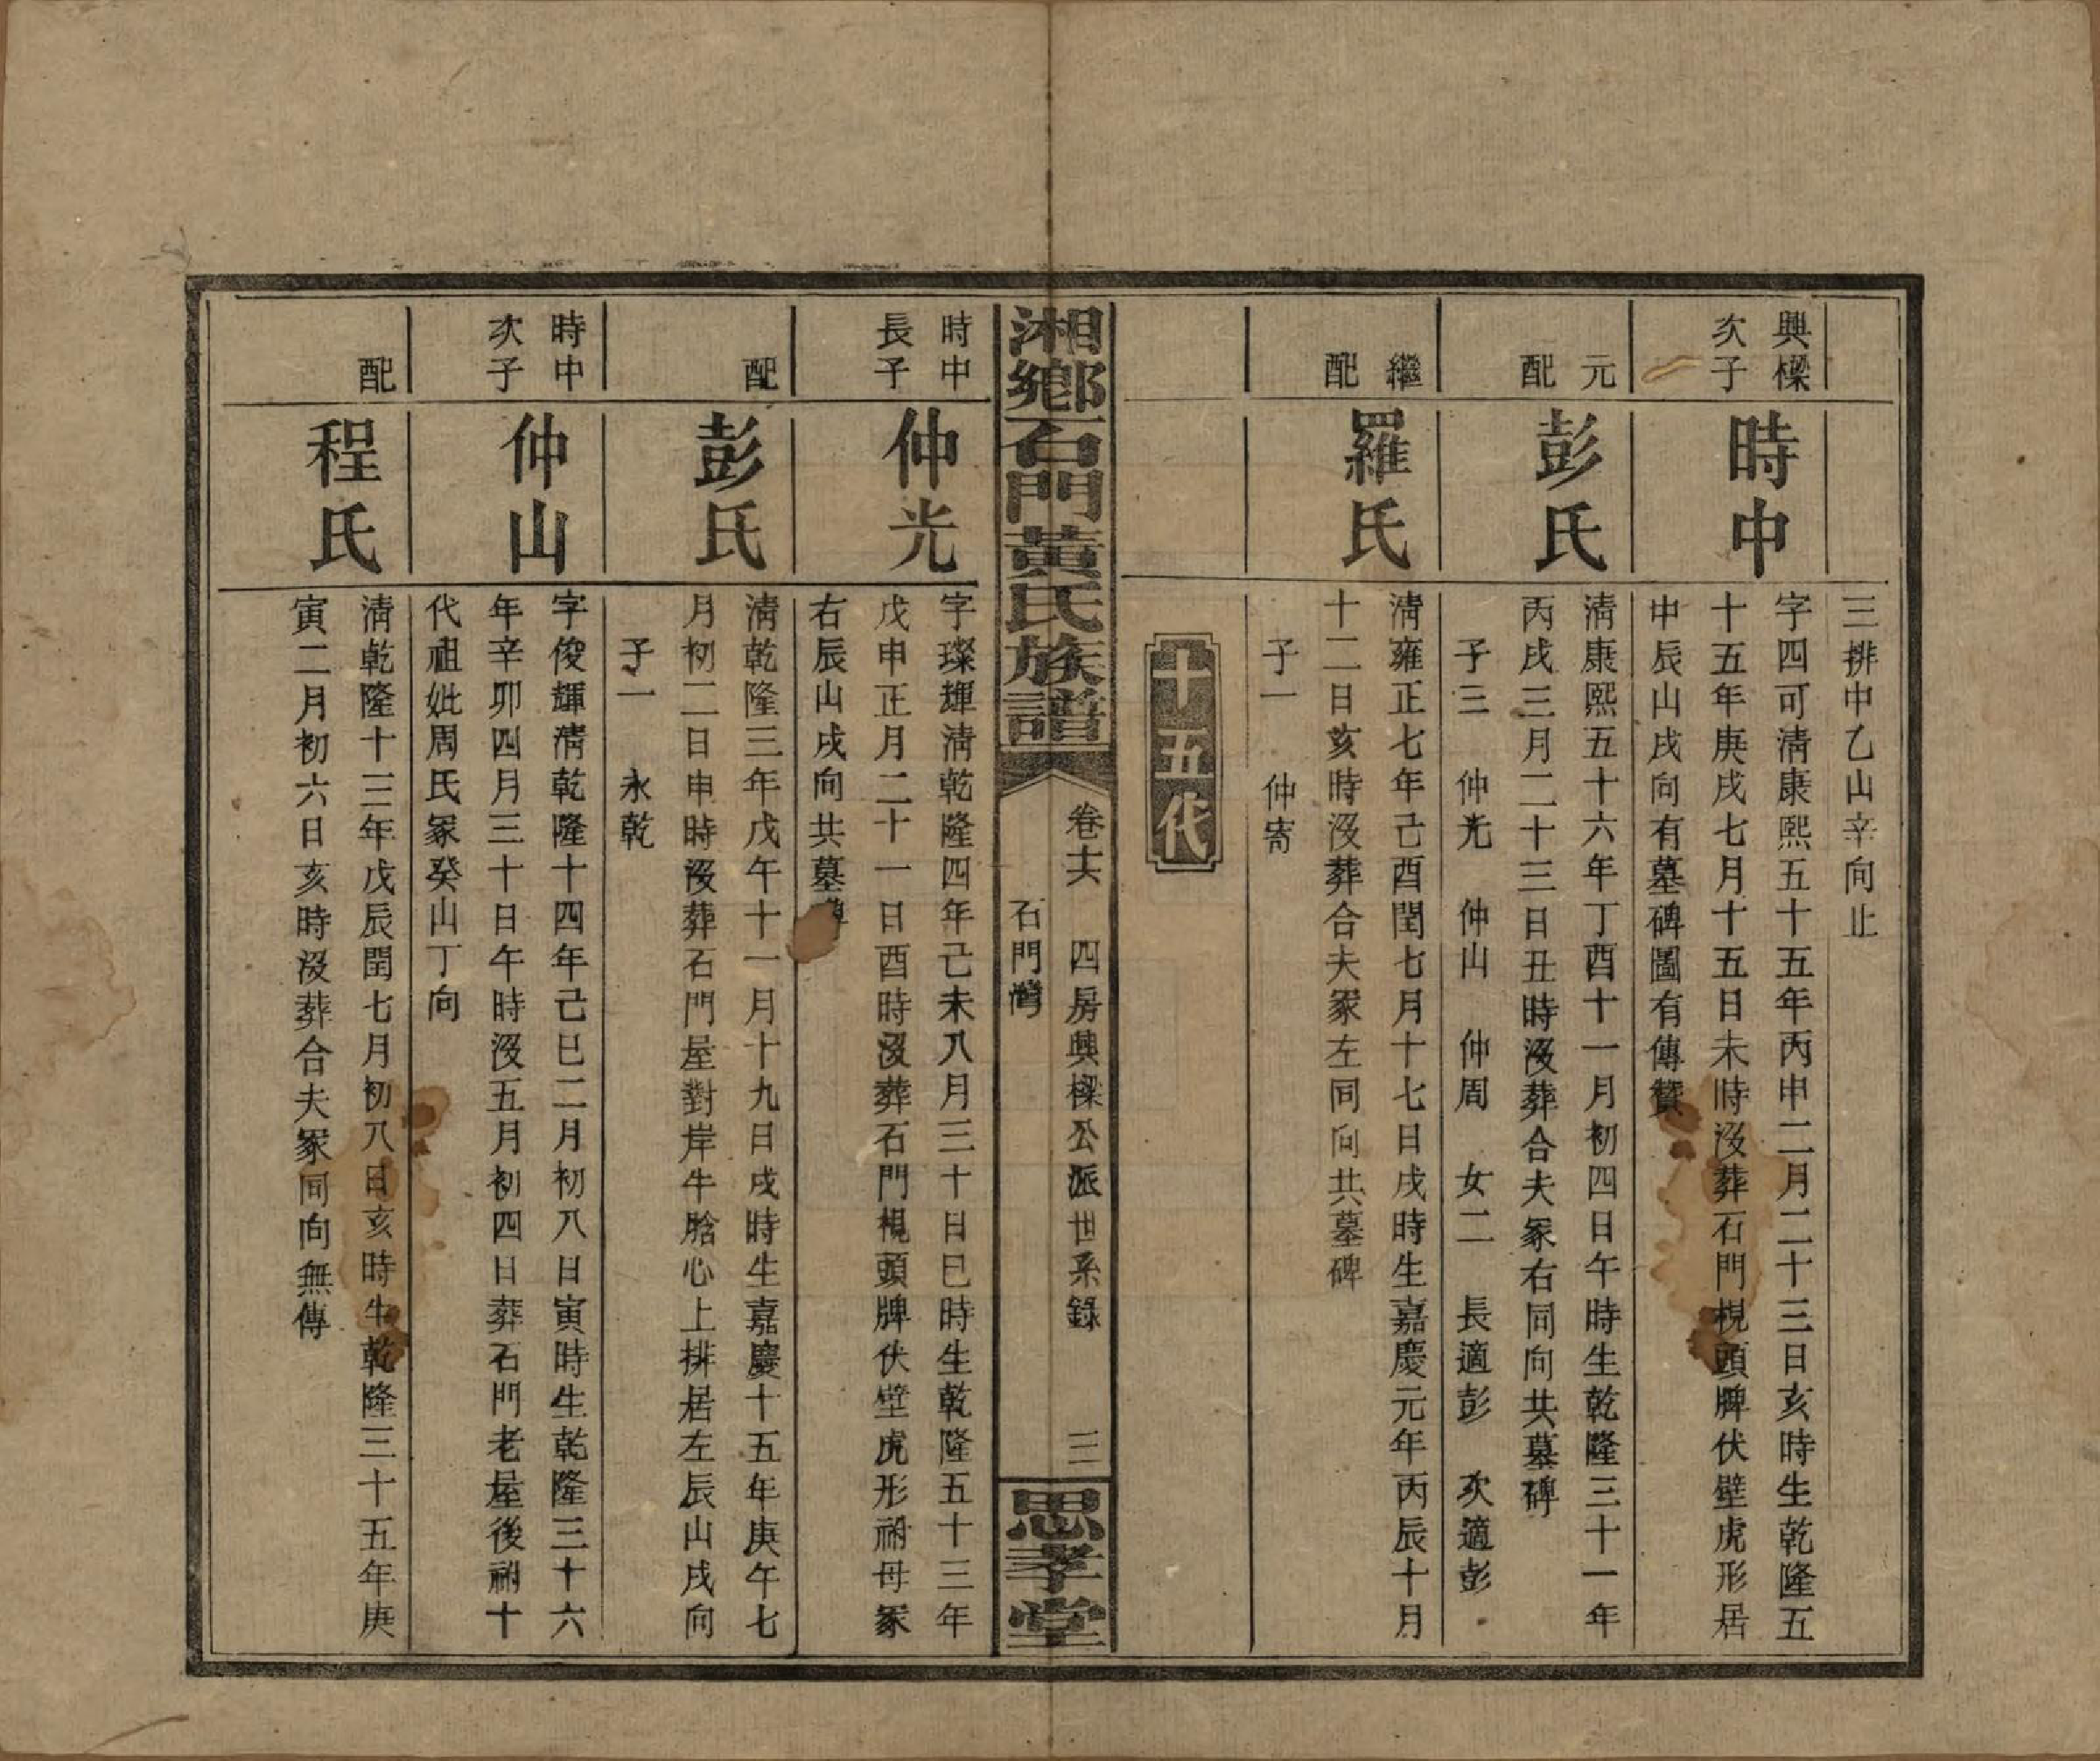 三排中乙山辛向止
興樑
次子
時中
字四可清康熙五十五年丙申二月二十三日亥時生乾隆五
十五年庚戌七月十五日未時沒葬石門梘頭牌伏壁虎形居
中辰山戌向有墓碑圖有傳贊
元
配
彭氏
清康熙五十六年丁酉十一月初四日午時生乾隆三十一年
丙戌三月二十三日丑時沒葬合夫冢右同向共墓碑
子三 仲光 仲山 仲周 女二 長適彭 次適彭
繼
配
羅氏
清雍正七年己酉閏七月十七日戌時生嘉慶元年丙辰十月
十二日亥時沒葬合夫冢左同向共墓碑
子一 仲寄
十五代
湘鄉石門黃氏族譜
卷十六 四房興樑公派世系錄 三
石門灣
思孝堂
時中
長子
仲光
字璨輝清乾隆四年己未八月三十日巳時生乾隆五十三年
戊申正月二十一日酉時沒葬石門梘頭牌伏壁虎形祔母冢
右辰山戌向共墓
配
彭氏
清乾隆三年戊午十一月十九日戌時生嘉慶十五年庚午七
月初二日申時沒葬石門屋對岸牛胎心上排居左辰山戌向
子一 永乾
時中
次子
仲山
字俊輝清乾隆十四年己巳二月初八日寅時生乾隆三十六
年辛卯四月三十日午時沒五月初四日葬石門老屋後祔十
代祖妣周氏冢癸山丁向
配
程氏
清乾隆十三年戊辰閏七月初八日亥時生乾隆三十五年庚
寅二月初六日亥時沒葬合夫冢同向無傳